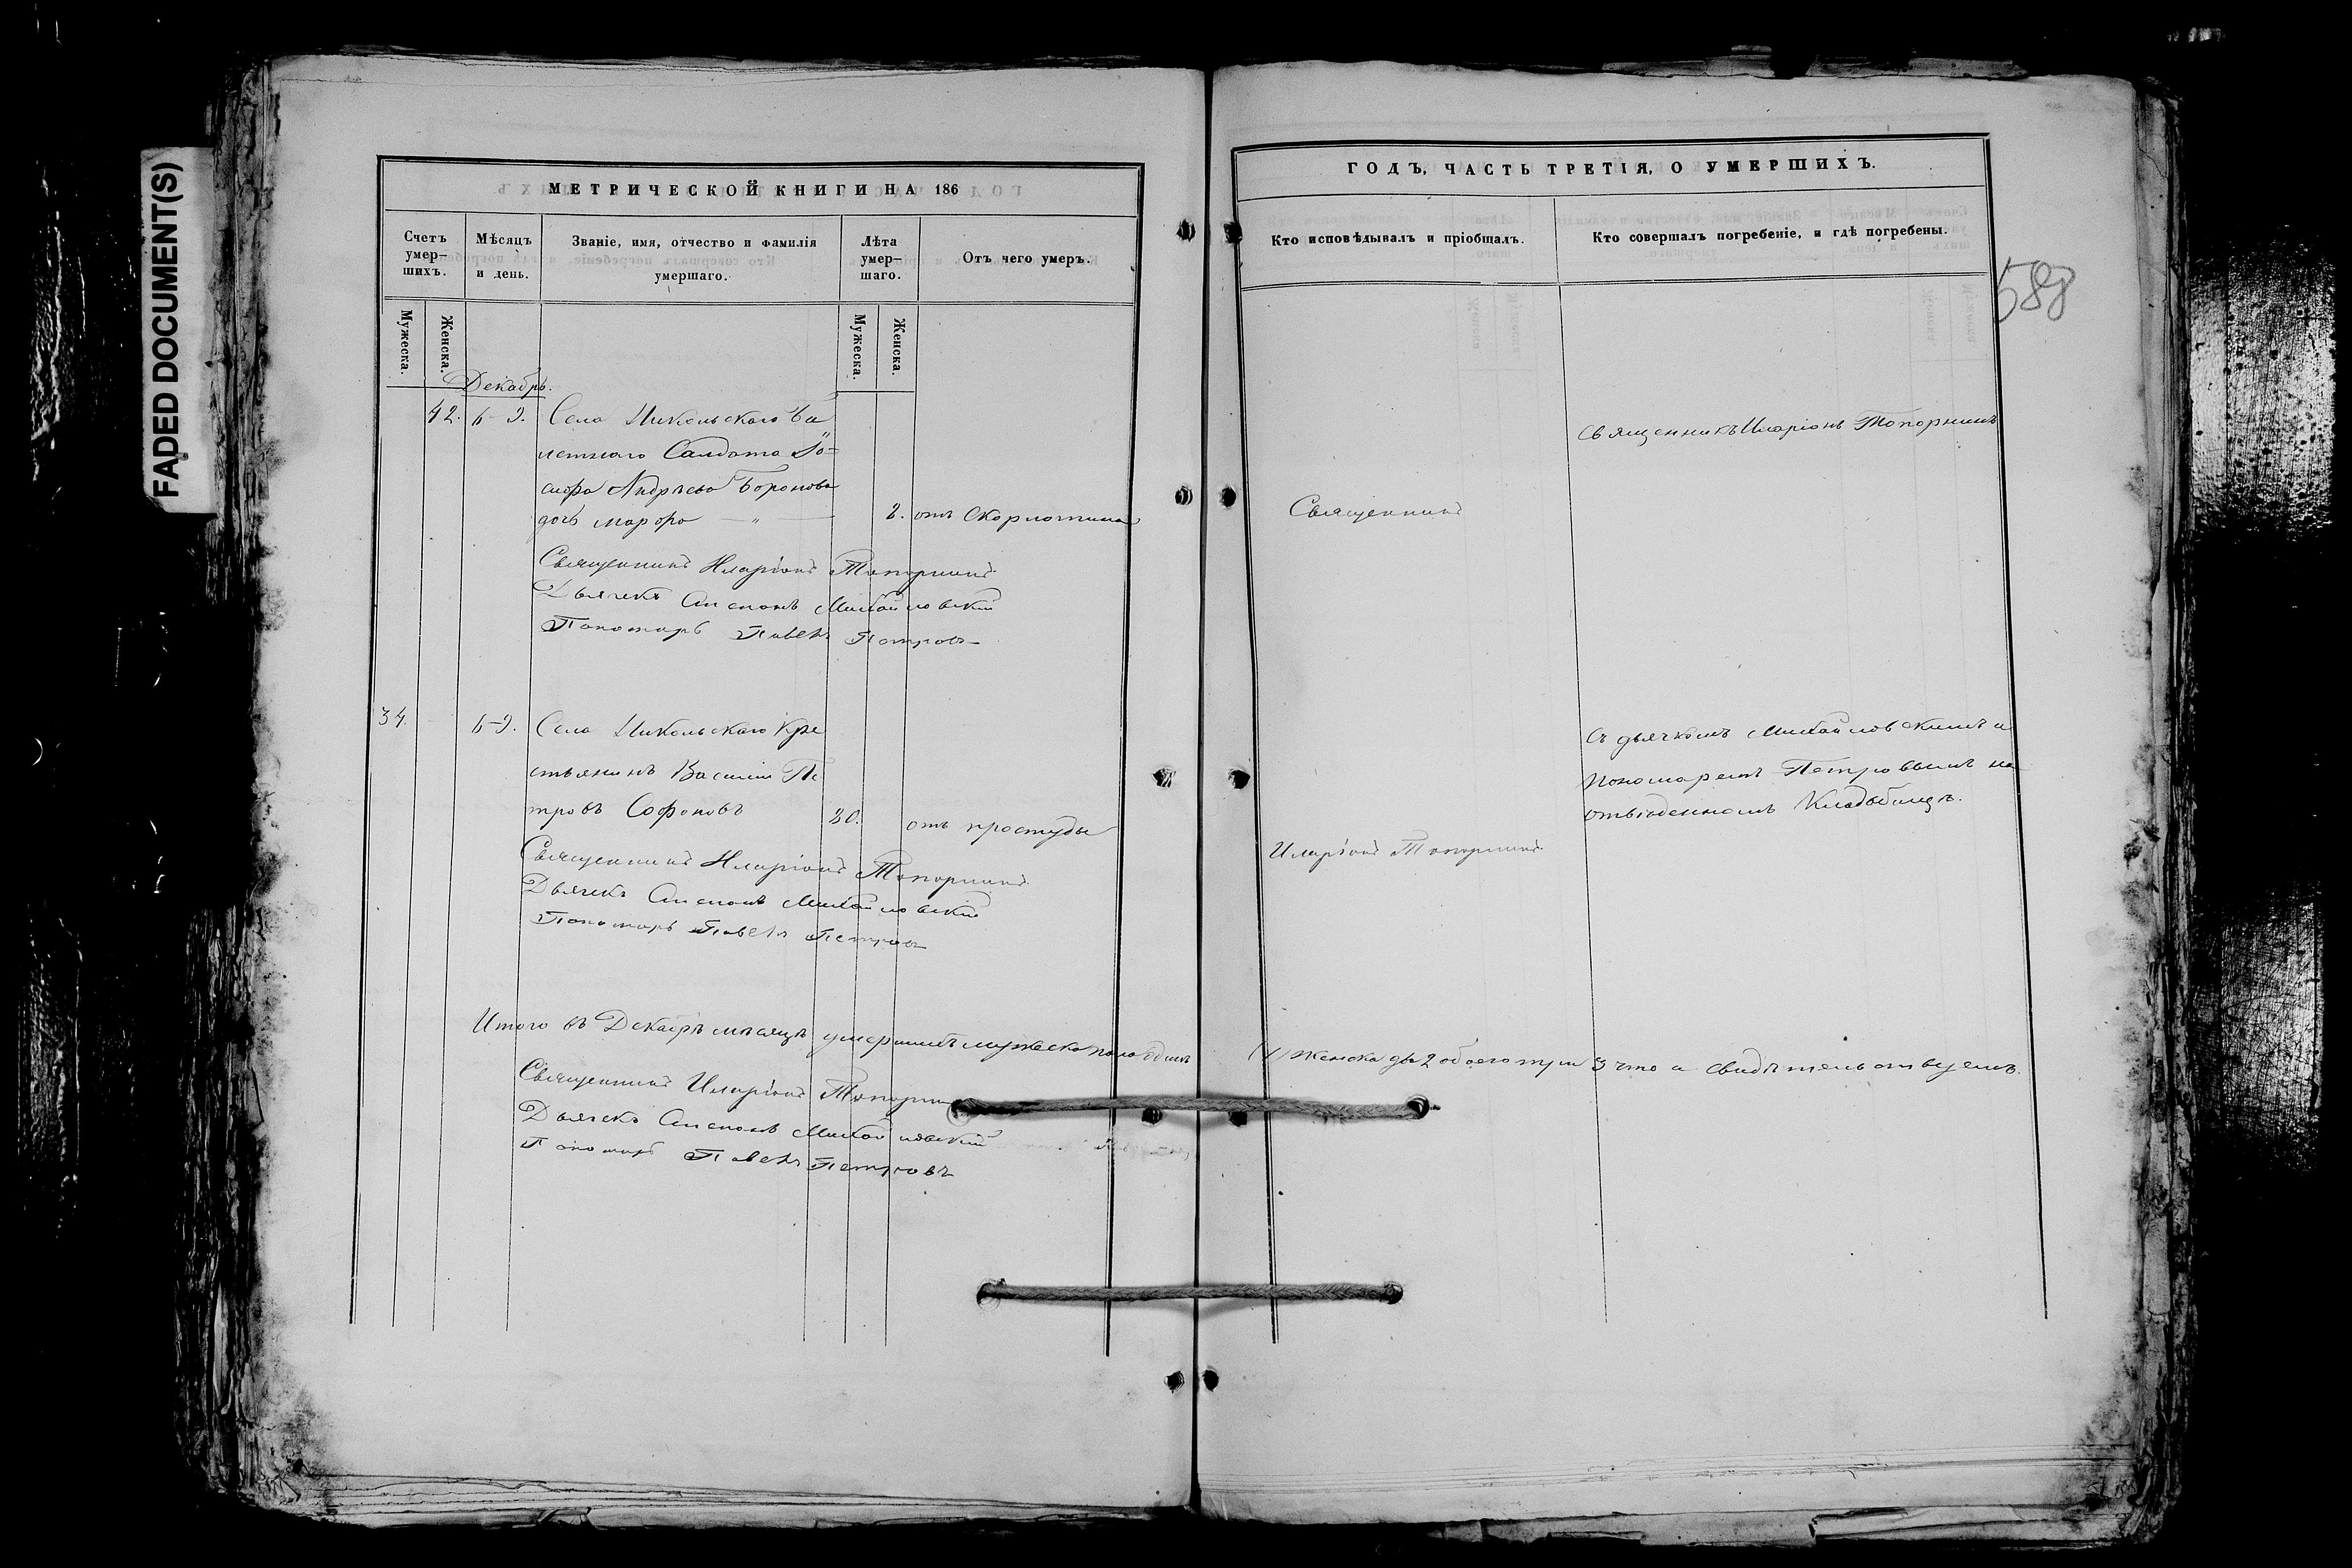 FADED DOCUMENT(S)
МЕТРИЧЕСКОЙ КНИГИ НА 186
Счетъ умер-шихъ.
Мѣсяцъ и день.
Званіе, имя, отчество и фамилія умершаго.
Лѣта умер-шаго.
Отъ чего умеръ.
Мужеска.
Женска.
Мужеска.
Женска.
Декабрь.
42.
Села Никольскаго Би
летнаго Салдата Іо-
сифа Андрѣева
дочь 2. отъ Скорлотины
Священникъ Иларіонъ Топорнинъ
Дьячекъ Михайловскій
Пономарь Павелъ Петровъ
34.
Села Никольскаго Кре
стьянинъ Василій Пе
тровъ Софоновъ 30. отъ простуды
Священникъ Иларіонъ Топорнинъ
Дьячекъ Михайловскій
Пономарь Павелъ Петровъ
Итого въ Декабрѣ мѣсяцѣ умершихъ мужеска пола одинъ
Священникъ Иларіонъ
Дьячекъ Михайловскій
Пономарь Павелъ Петровъ
ГОДЪ, ЧАСТЬ ТРЕТІЯ, О УМЕРШИХЪ.
Кто исповѣдывалъ и пріобщалъ.
Кто совершалъ погребеніе, и гдѣ погребены.
588
Священникъ Иларіонъ Топорнинъ
Священникъ
съ дьячкомъ Михайловскимъ и
пономаремъ Петровымъ на
отведенномъ Кладбищѣ.
Иларіонъ Топорнинъ
(1) Женска 2 обоего 3 что и свидѣтельствуемъ.